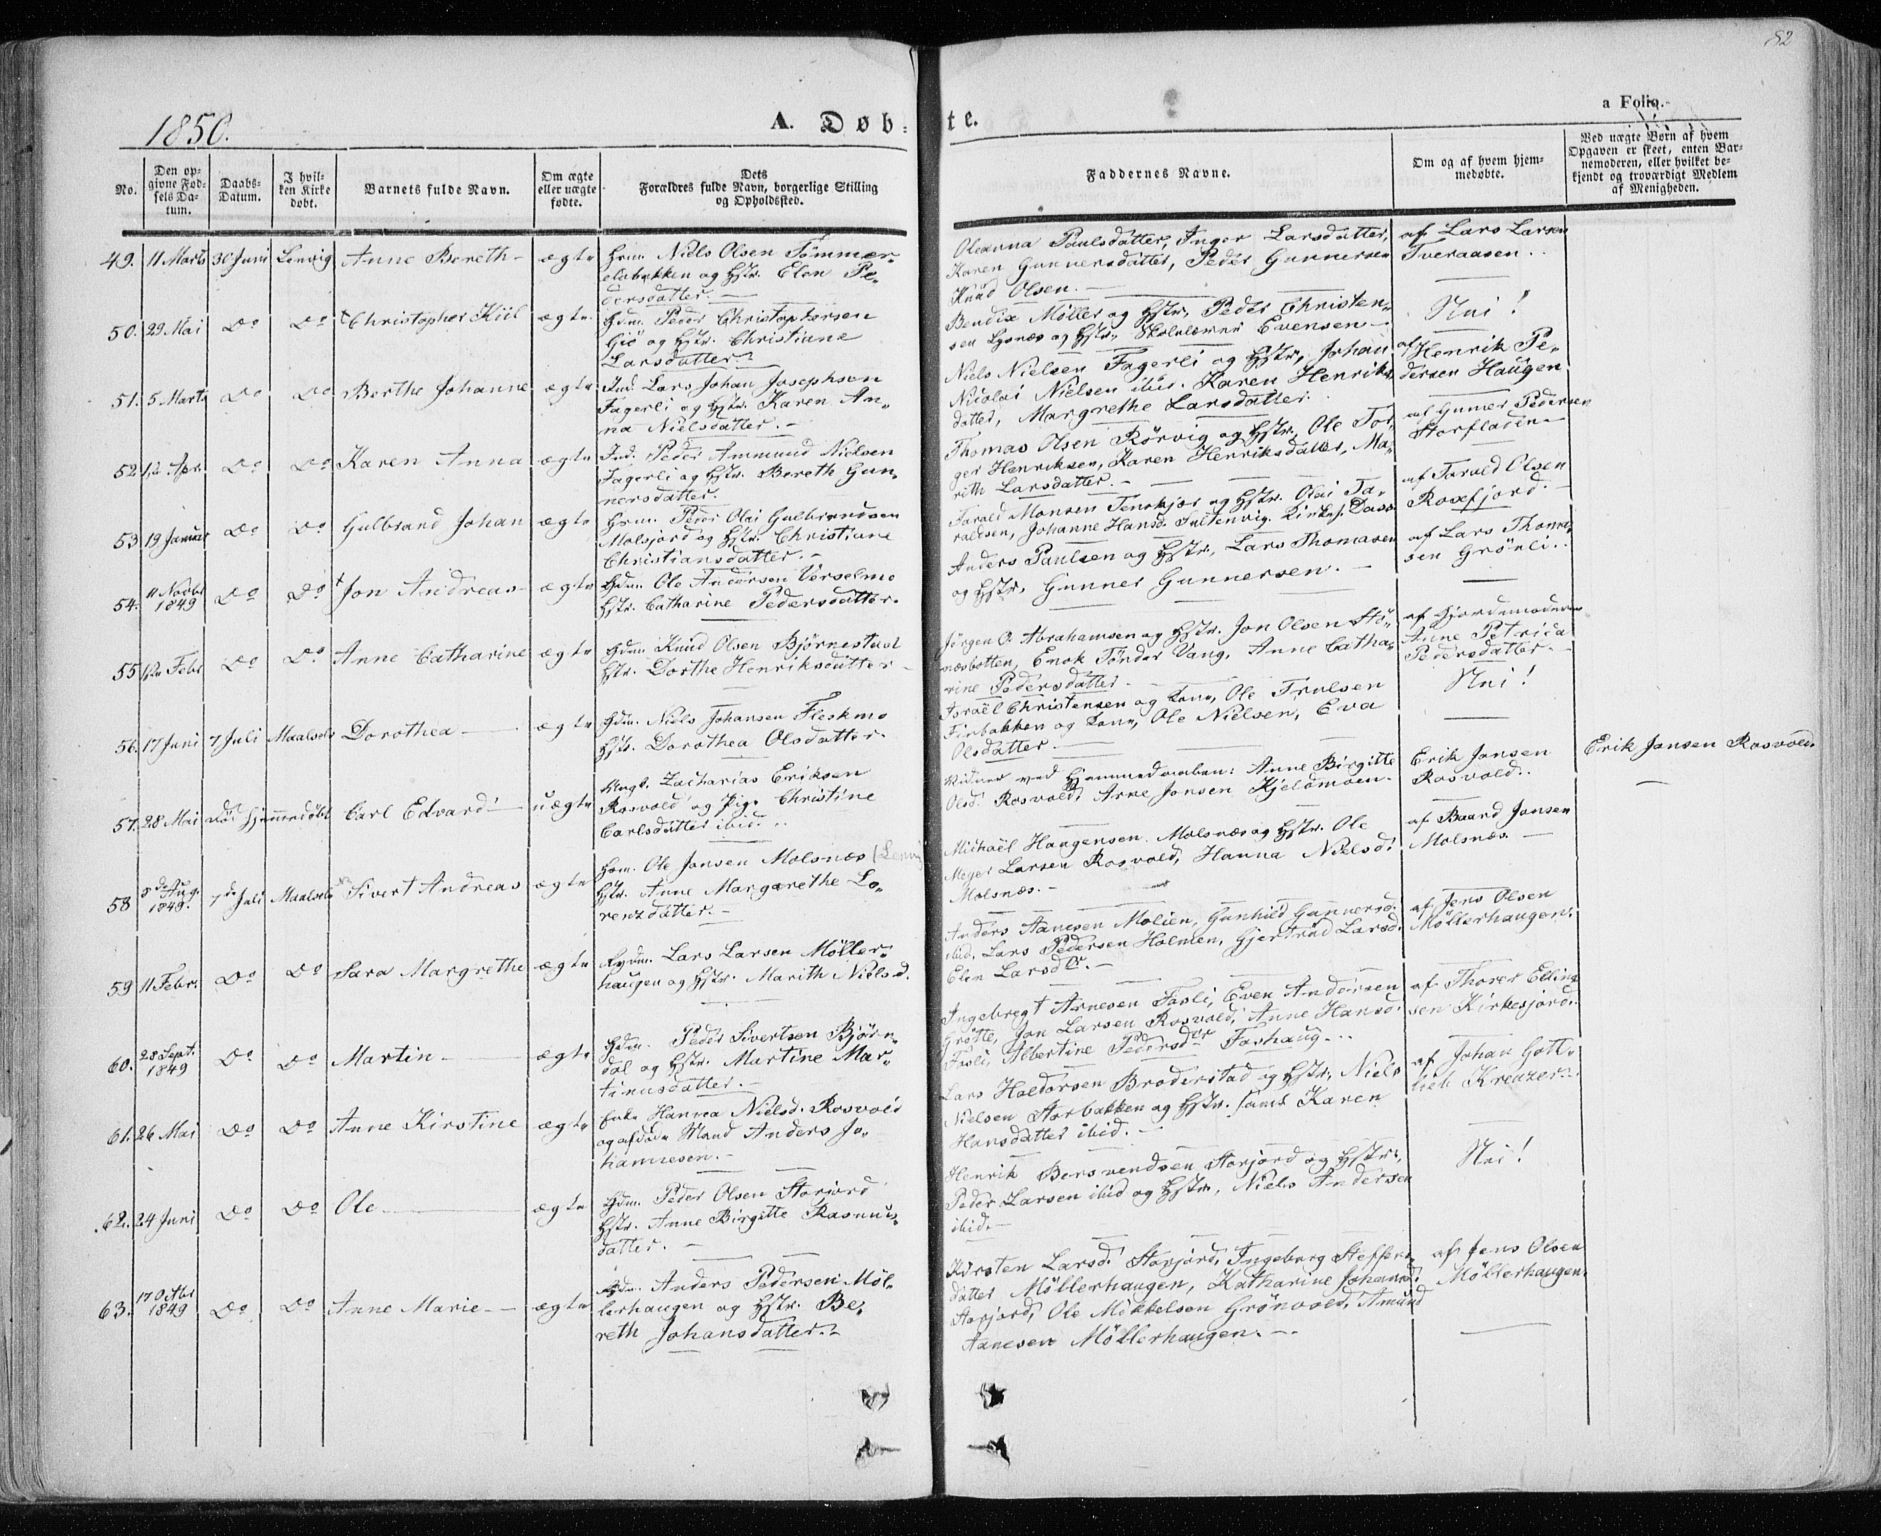 82
1850.
A. Døb-
te.
a Folio.
No.
Den op-
givne Fød-
sels Da-
tum.
Daabs-
Datum.
I hvil-
ken Kirke
døbt.
Barnets fulde Navn.
Om ægte
eller uægte
fødte.
Dets
Forældres fulde Navn, borgerlige Stilling
og Opholdssted.
Faddernes Navne.
Om og af hvem hjem-
medøbte.
Ved uægte Børn af hvem
Opgaven er skeet, enten Bar-
nemoderen, eller hvilket be-
kjendt og troværdigt Medlem
af Menigheden.
49. 11 Marts 30 Juni Lenvig Anne Bereth - ægte
Hsm. Niels Olsen Tømmer-
elvbakken og Hstr. Elen Pe-
dersdatter. -
Oleanna Paulsdatter, Inger Larsdatter,
Karen Gunnersdatter, Peder Gunnersen
Knud Olsen. -
af Lars Larsen
Tveraasen.
50. 29 Mai Do Do Christopher Kiil ægte
Gdm. Peder Christophersen
Giö og Hstr. Christiane
Larsdatter.
Bendix Møller og Hstr., Peder Christen-
sen Lysnæs og Hstr., Skolelærer Evensen -
Nei!
51. 5 Marts Do Do Berthe Johanne ægte
Ind. Lars Johan Josephsen
Fagerli og Hstr. Karen An-
na Nielsdatter. -
Niels Nielsen Fagerli og Hstr., Johan
Nicolai Nielsen ibid. Karen Henriks-
datter, Margrethe Larsdatter.
af Henrik Pe-
dersen Haugen
52. 12 Apr. Do Do Karen Anna ægte
Ind. Peder Ammund Nielsen
Fagerli og Hstr. Bereth Gun-
nersdatter.
Thomas Olsen Rörvig og Hstr., Ole Tor-
ger Henriksen, Karen Henriksdatter, Ma-
rith Larsdatter. -
af Gunner Pedersen
Storfladen -
53 19 Januar Do Do Gulbrand Johan ægte
Hsm. Peder Olai Gulbrandsen
Molsjord og Hstr. Christiane
Christiansdatter. -
Tarald Monsen Tenskjær og Hstr. Olai Ta-
raldsen, Johanne Hansd.
af Tarald Olsen
Rossfjord. -
54. 11 Novbr 1849 Do Do Jon Andreas - ægte
Gdm. Ole Andersen Verselmo
Hstr. Catharine Pedersdatter.
Anders Paulsen og Hstr., Lars Thomasen
og Hstr., Gunner Gunnersen. -
af Lars Thoma-
sen Grönli.
55 12 Febr Do Do Anne Catharine ægte
Gdm. Knud Olsen Bjørnestad
Hstr. Dorthe Henriksdatter -
Jörgen O. Abrahamsen og Hstr. Jon Olsen Stö-
næsbotten, Enok Tönder Vang, Anne Catha-
rine Pedersdatter -
af Gjordemoderen
Anne Petrida
Pedersdatter. -
56. 17 Juni 7 Juli Maalselv Dorothea - ægte
Gdm. Niels Johansen Fleskmo
Hstr. Dorothea Olsdatter.
Israël Christensen og Kone, Ole Trulsen
Firbakken og Kone, Ole Nielsen, Eva
Olsdatter. -
Nei!
57. 28 Mai Død Hjemmedøbt Carl Edvard - uægte
Ungk. Zacharias Eriksen
Rosvold og Pige Christine
Carlsdatter ibid.
Vidner ved Hjemmedaaben: Anne Birgitte
Olsd. Rosvold, Arne Jonsen Kjeldmoen
Erik Jansen
Rosvold.
Erik Jansen Rosvold
58 8de Aug. 1849. 7de Juli Maalselv Sivert Andreas ægte
Hsm. Ole Jonsen Molsnæs (Lenvig
Hstr. Anne Margrethe Lo-
renzdatter. -
Michaël Haagensen Molsnæs og Hstr. Ole
Meyer Larsen Rosvold, Hanna Nielsd.
Molsnæs. -
af Baard Jonsen
Molsnæs. -
59 11 Febr. Do Do Sara Margrethe ægte
Rydm. Lars Larsen Möller-
haugen og Hstr. Marith Nielsd.
Anders Aanesen Molien, Gunhild Gunnersd.
ibid, Lars Pedersen Holmen, Gjertrud Larsd.
Elen Larsdtr. -
af Jens Olsen
Möllerhaugen.
60. 28 Sept. 1849 Do Do Martin - ægte
Gdm. Peder Sivertsen Björn-
dal og Hstr. Martine Mar-
tinusdatter. -
Ingebregt Arnesen Fosli, Even Andersen
Grötte, Jon Larsen Rosvold, Anne Hansd.
Fosli, Albertine Pedersdtr Foshaug. -
af Thorer Elling-
sen Kirkesjord.
61. 26 Mai Do Do Anne Kirstine ægte
Enke Hanna Nielsd. Rosvold
og afdøde Mand Anders Jo-
hannesen. -
Lars Haldorsen Broderstad og Hstr., Niels
Nielsen Storbakken og Hstr. samt Karen
Hansdatter ibid. -
af Johan Gott-
lieb Kreuzer.
62. 24 Juni Do Do Ole - ægte
Gdm. Peder Olsen Storjord
Hstr. Anne Birgitte Rasmus-
datter. -
Henrik Bersvendsen Storjord og Hstr.,
Peder Larsen ibid og Hstr., Niels Andersen
ibid. -
Nei!
63. 17 Octbr 1849 Do Do Anne Marie - ægte
Gdm. Anders Pedersen Möl-
lerhaugen og Hstr. Be-
reth Johansdatter.
Kirsten Larsd. Storjord, Ingeborg Steffens-
datter Möllerhaugen, Katharine Johannsd.
Storjord, Ole Mikkelsen Grönvold, Amund
Aanesen Möllerhaugen. -
af Jens Olsen
Möllerhaugen.